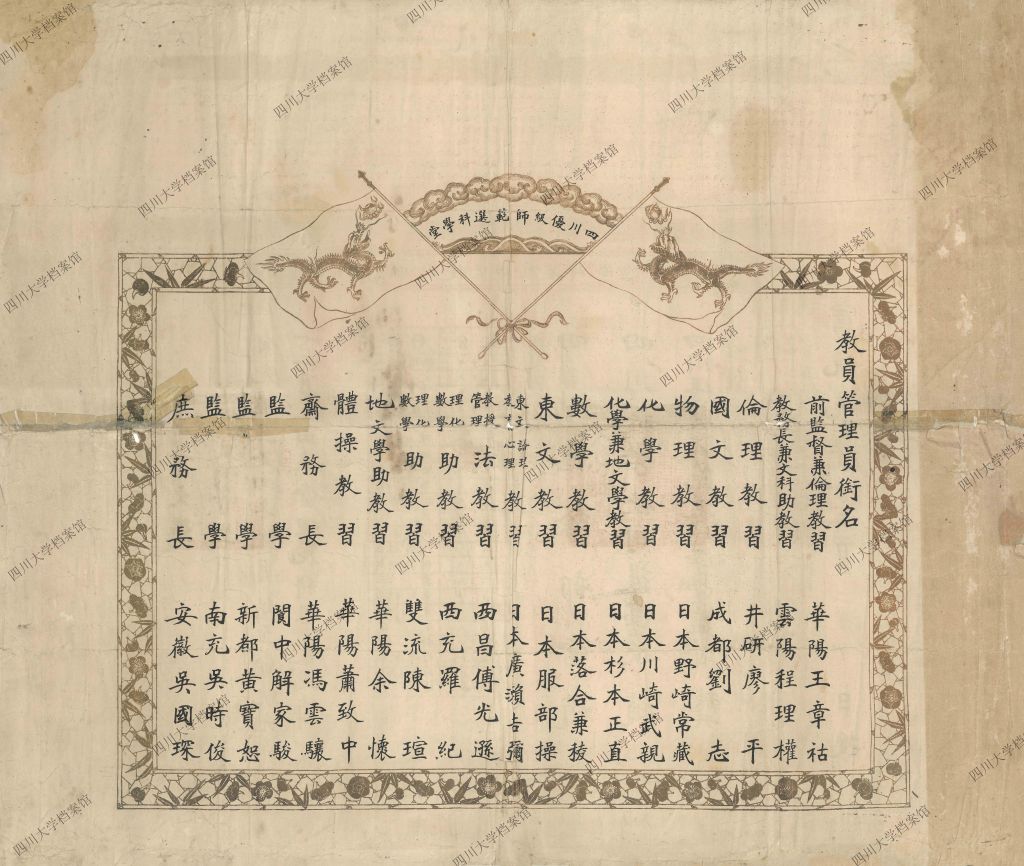 四川優級師範選科學堂
教員管理員銜名
前監督兼倫理教習 華陽王章祜
教務長兼文科助教習 雲陽程理權
倫理教習 井研廖平
國文教習 成都劉志
物理教習 日本野崎常藏
化學教習 日本川崎武親
化學兼地文學教習 日本杉本正直
數學教習 日本落合兼稜
東文教習 日本服部操
東文論理心理教習 日本廣瀕吉彌
教授管理法教習 西昌傅光遜
理化數學助教習 西充羅紀
理化數學助教習 雙流陳瑄
地文學助教習 華陽余懷
體操教習 華陽蕭致中
齋務長 華陽馮雲驤
監學 閬中解家駿
監學 新都黃寶恕
監學 南充吳時俊
庶務長 安徽吳國琛
四川大学档案馆